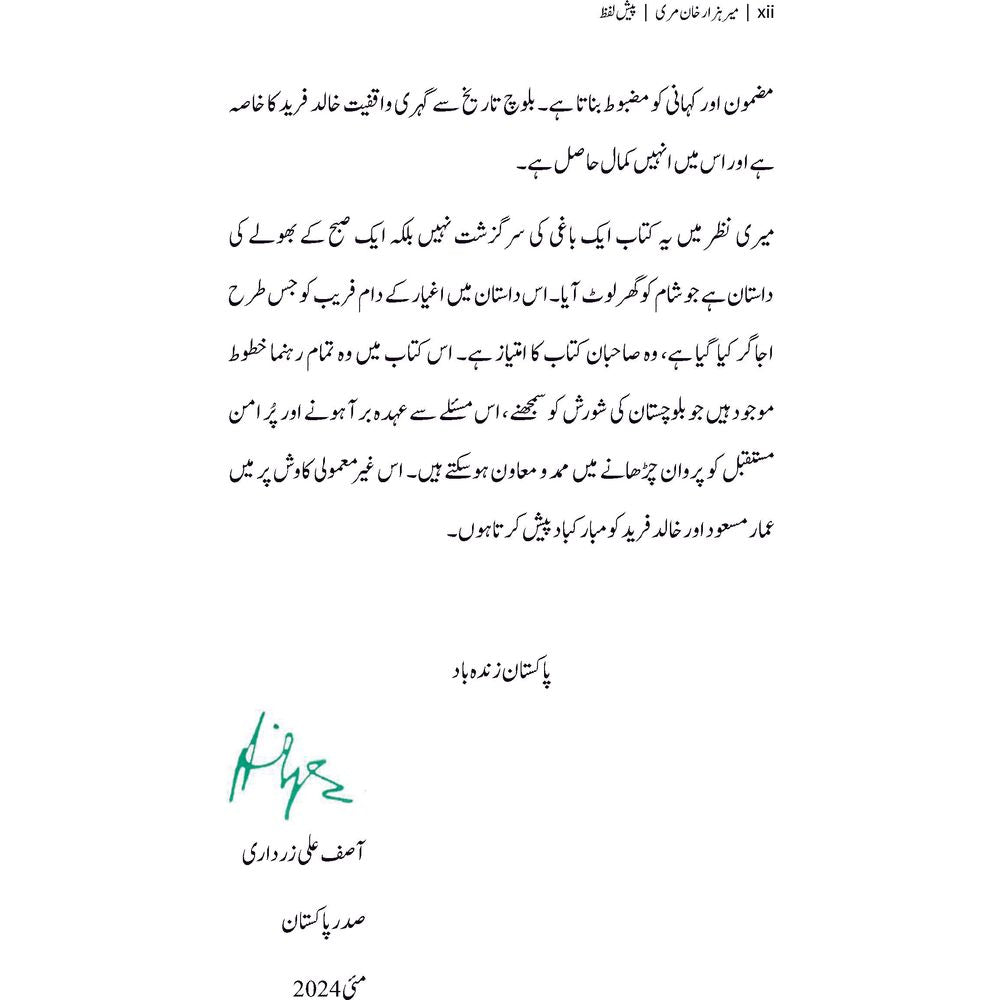 xii | میر ہزار خان مری | پیش لفظ
مضمون اور کہانی کو مضبوط بناتا ہے۔ بلوچ تاریخ سے گہری واقفیت خالد فرید کا خاصہ
ہے اور اس میں انہیں کمال حاصل ہے۔
میری نظر میں یہ کتاب ایک باغی کی سرگزشت نہیں بلکہ ایک صبح کے بھولے کی
داستان ہے جو شام کو گھر لوٹ آیا۔ اس داستان میں اغیار کے دام فریب کو جس طرح
اجاگر کیا گیا ہے، وہ صاحبان کتاب کا امتیاز ہے۔ اس کتاب میں وہ تمام رہنما خطوط
موجود ہیں جو بلوچستان کی شورش کو سمجھنے، اس مسئلے سے عہدہ برآ ہونے اور پُر امن
مستقبل کو پروان چڑھانے میں ممد و معاون ہو سکتے ہیں۔ اس غیر معمولی کاوش پر میں
عمار مسعود اور خالد فرید کو مبارکباد پیش کرتا ہوں۔
پاکستان زندہ باد
آصف علی زرداری
صدر پاکستان
مئی 2024